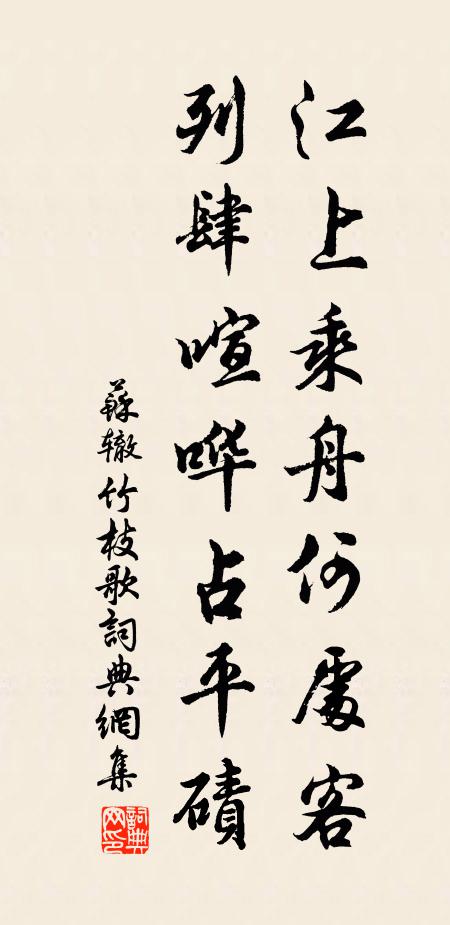 江上乘舟何處客
列肆喧哗占平磧
蘇辙竹枝歌詞典網集
詞典网印